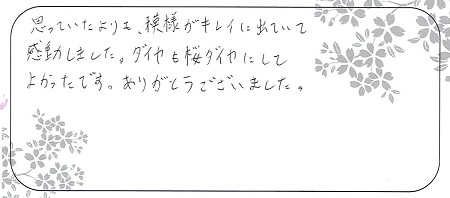 思っていたよりも、模様がキレイに出ていて
感動しました。ダイヤも桜ダイヤにして
よかったです。ありがとうございました。